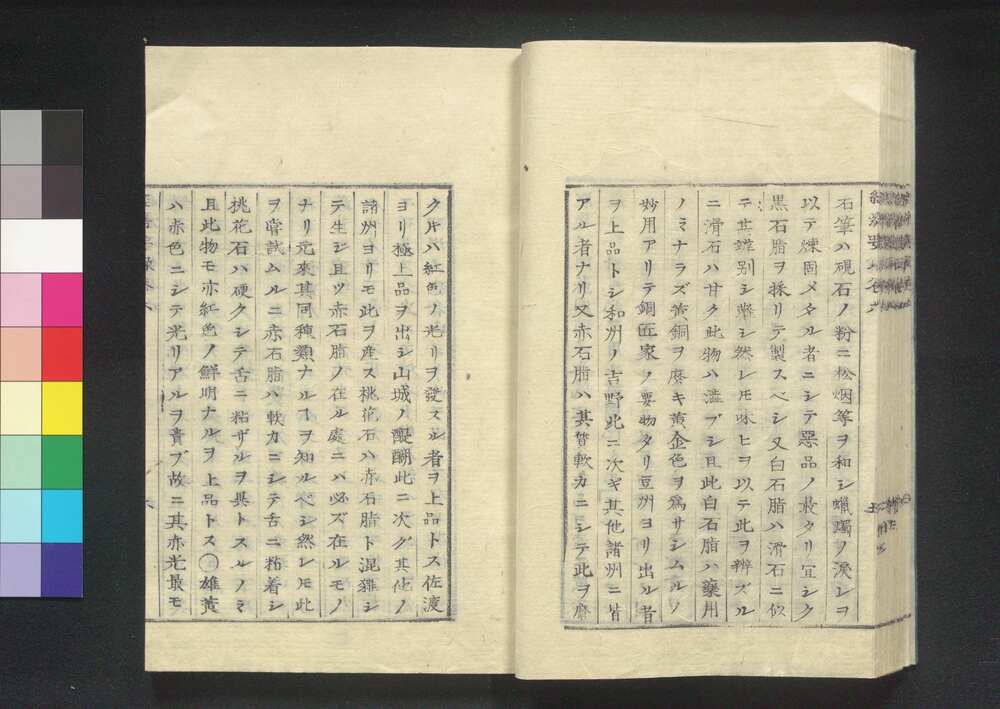 石筆ハ硯石ノ粉ニ松烟等ヲ和シ蝋燭ノ涙レヲ
以テ煉固メタル者ニシテ惡品ノ最タリ宜シク
黒石脂ヲ採リテ製スベシ又白石脂ハ滑石ニ似
テ其辨別シ難シ然レ𪜈味ヒヲ以テ此ヲ辨ズル
ニ滑石ハ甘ク此物ハ澁ブシ且此白石脂ハ藥用
ノミナラズ黄銅ヲ磨キ黄金色ヲ爲サシムルノ
妙用アリテ銅匠家ノ要物タリ豆州ヨリ出ル者
ヲ上品トシ和州ノ吉野此ニ次ギ其他諸州ニ皆
アル者ナリ又赤石脂ハ其質軟カニシテ此ヲ磨
ク片ハ紅色ノ光リヲ發スル者ヲ上品トス佐渡
ヨリ極上品ヲ出シ山城ノ醍醐此ニ次グ其他ノ
諸州ヨリモ此ヲ産ス桃花石ハ赤石脂ト混雜シ
テ生シ且ツ赤石脂ノ在ル處ニハ必ズ在ルモノ
ナリ元來其同種類ナルヿヲ知ルベシ然レ𪜈此
ヲ甞試ムルニ赤石脂ハ軟カニシテ舌ニ粘着シ
桃花石ハ硬クシテ舌ニ粘ザルヲ異トスルノミ
且此物モ亦紅色ノ鮮明ナルヲ上品トス○雄黄
ハ赤色ニシテ光リアルヲ貴ブ故ニ其赤光最モ